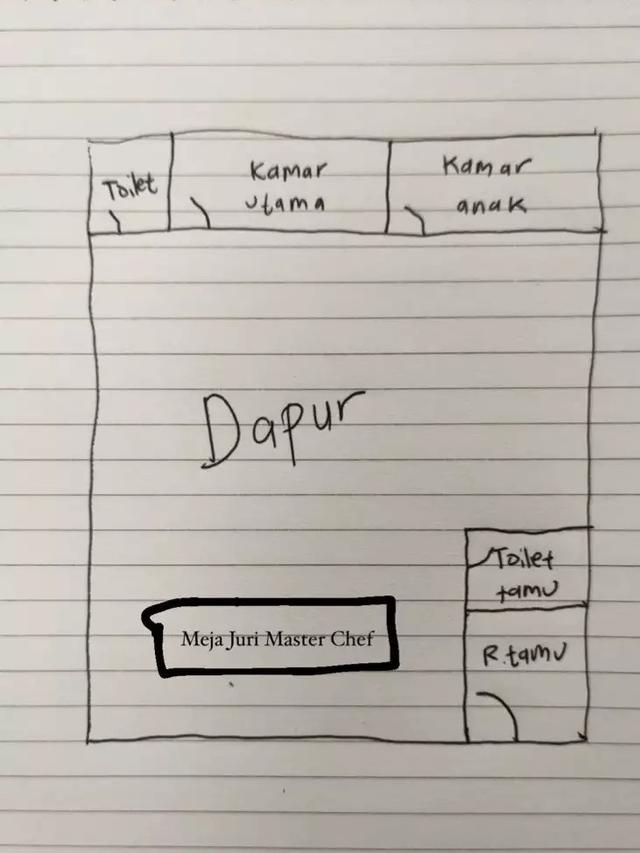 Toilet
Kamar
utama
Kamar
anak
Dapur
Toilet
tamu
Meja Juri Master Chef
R.tamu